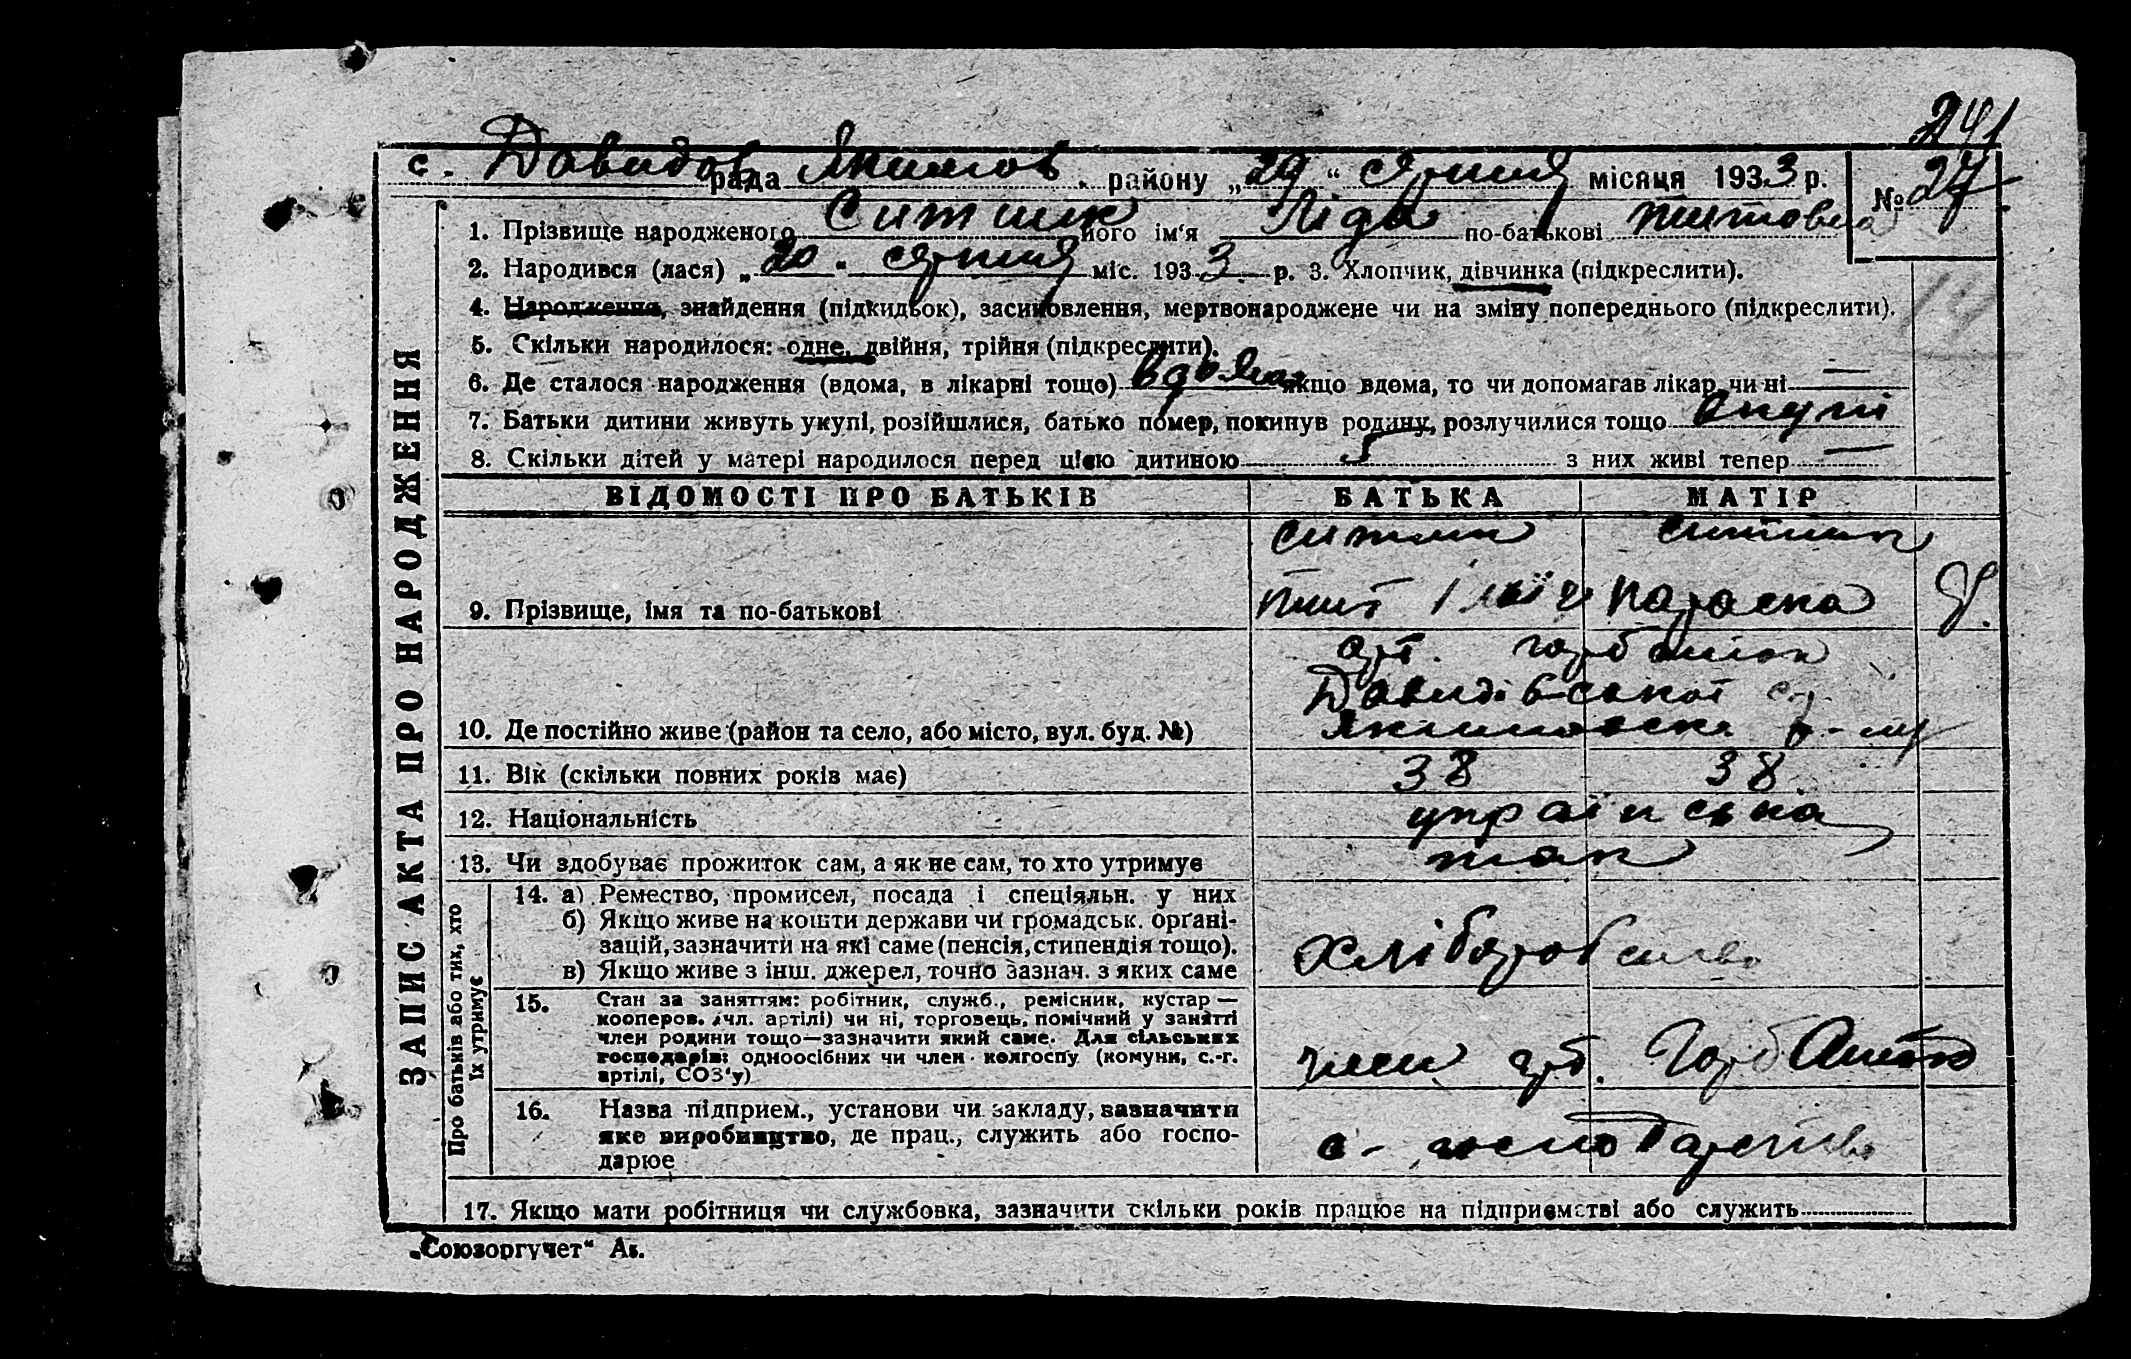 241
с. Давидов рада Якимов. району „29“ серпня місяця 1933 р. № 27
1. Прізвище народженого Ситник його ім‘я Ліда по-батькові Титовна
2. Народився (лася) „20“ серпня міс. 1933 р. 3. Хлопчик, дівчинка (підкреслити).
4. Народження, знайдення (підкидьок), засиновлення, мертвонароджене чи на зміну попереднього (підкреслити).
14
5. Скільки народилося: одне, двійня, трійня (підкреслити).
6. Де сталося народження (вдома, в лікарні тощо) вдома якщо вдома, то чи допомагав лікар, чи ні —
7. Батьки дитини живуть укупі, розійшлися, батько помер, покинув родину, розлучилися тощо вкупі
8. Скільки дітей у матері народилося перед цією дитиною 5 з них живі тепер —
ВІДОМОСТІ ПРО БАТЬКІВ БАТЬКА МАТІР
Ситник Ситник
9. Прізвище, імя та по-батькові Тит Ілліч Параска
арт. Горбаньов
Давидівської с/р.
10. Де постійно живе (район та село, або місто, вул. буд. №) Якимовськ. р-ну
11. Вік (скільки повних років має) 38 38
12. Національність українська
13. Чи здобуває прожиток сам, а як не сам, то хто утримує так
14. а) Ремество, промисел, посада і спеціяльн. у них
б) Якщо живе на кошти держави чи громадськ. орґані-
зацій, зазначити на які саме (пенсія, стипендія тощо).
в) Якщо живе з інш. джерел, точно зазнач. з яких саме
хліборобство
15. Стан за заняттям: робітник, служб., ремісник, кустар —
кооперов. (чл. артілі) чи ні, торговець, помічний у занятті
член родини тощо—зазначити який саме. Для сільських
господарів: одноосібних чи член колгоспу (комуни, с.-г.
артілі, СОЗ'у)
член арт.
16. Назва підприєм., установи чи закладу, зазначити
яке виробництво, де прац., служить або госпо-
дарює
с-господарство
17. Якщо мати робітниця чи службовка, зазначити скільки років працює на підприємстві або служить
ЗАПИС АКТА ПРО НАРОДЖЕННЯ
Про батьків або тих, хто
їх утримує
„Союзоргучет“ Аг.